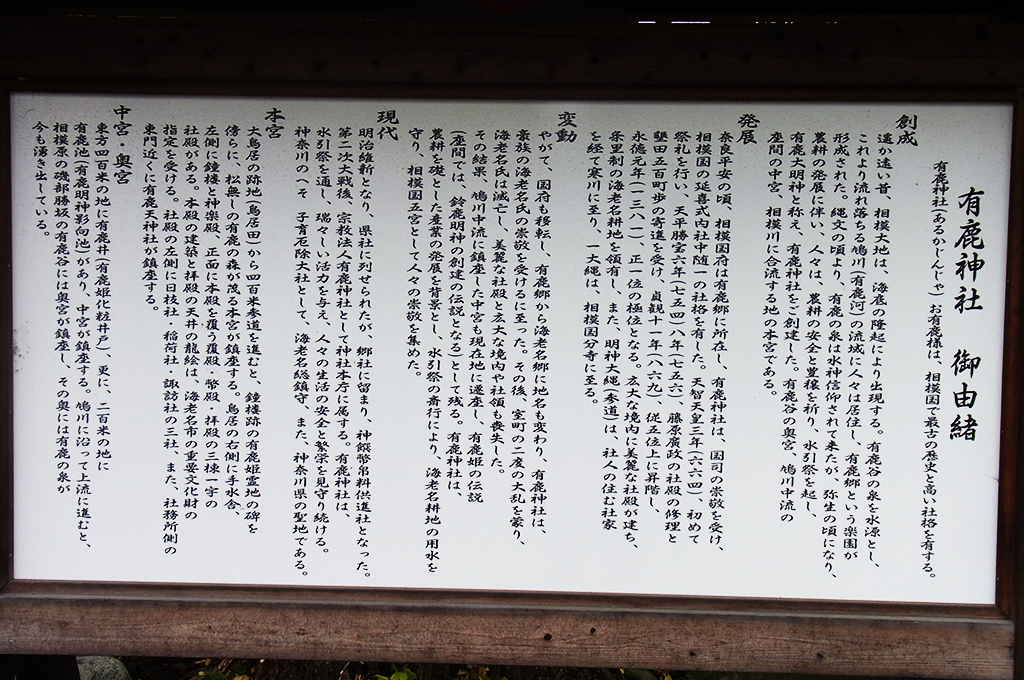 有鹿神社 御由緒
有鹿神社(あるかじんじゃ)お有鹿様は、相模国で最古の歴史と高い社格を有する。
創成
遥か遠い昔、相模大地は、海底の隆起により出現する。有鹿谷の泉を水源とし、
これより流れ落ちる鳩川(有鹿河)の流域に人々は居住し、有鹿郷という楽園が
形成された。縄文の頃より、有鹿の泉は水神信仰されて来たが、弥生の頃になり、
農耕の発展に伴い、人々は、農耕の安全と豊穣を祈り、水引祭を起し、
有鹿大明神と称え、有鹿神社をご創建した。有鹿谷の奥宮、鳩川中流の
座間の中宮、相模川に合流する地の本宮である。
発展
奈良平安の頃、相模国府は有鹿郷に所在し、有鹿神社は、国司の崇敬を受け、
相模国の延喜式内社中随一の社格を有した。天智天皇三年(六六四)、初めて
祭礼を行い、天平勝宝六年(七五四)八年(七五六)、藤原廣政の社殿の修理と
墾田五百町歩の寄進を受け、貞観十一年(八六九)、従五位上に昇階し、
永徳元年(一三八一)、正一位の極位となる。広大な境内に美麗な社殿が建ち、
条里制の海老名耕地を領有し、また、明神大縄(参道)は、社人の住む社家
を経て寒川に至り、一大縄は、相模国分寺に至る。
変動
やがて、国府も移転し、有鹿郷から海老名郷に地名も変わり、有鹿神社は、
豪族の海老名氏の崇敬を受けるに至った。その後、室町の二度の大乱を蒙り、
海老名氏は滅亡し、美麗な社殿と広大な境内や社領も喪失した。
その結果、鳩川中流に鎮座した中宮も現在地に遷座し、有鹿姫の伝説
(座間では、鈴鹿明神の創建の伝説となる)として残る。有鹿神社は、
農耕を礎とした産業の発展を背景とし、水引祭の斎行により、海老名耕地の用水を
守り、相模国五宮として人々の崇敬を集めた。
現代
明治維新となり、県社に列せられたが、郷社に留まり、神饌幣帛料供進社となった。
第二次大戦後、宗教法人有鹿神社として神社本庁に属する。有鹿神社は、
水引祭を通し、瑞々しい活力を与え、人々の生活の安全と繁栄を見守り続ける。
神奈川のへそ 子育厄除大社として、海老名総鎮守、また、神奈川県の聖地である。
本宮
大鳥居の跡地(鳥居田)から四百米参道を進むと、鐘楼跡の有鹿姫霊地の碑を
傍らに、松無しの有鹿の森が茂る本宮が鎮座する。鳥居の右側に手水舎、
左側に鐘楼と神楽殿、正面に本殿を覆う覆殿・幣殿・拝殿の三棟一宇の
社殿がある。本殿の建築と拝殿の天井の龍絵は、海老名市の重要文化財の
指定を受ける。社殿の左側に日枝社・稲荷社・諏訪社の三社、また、社務所側の
東門近くに有鹿天神社が鎮座する。
中宮・奥宮
東方四百米の地に有鹿井(有鹿姫化粧井戸)、更に、二百米の地に
有鹿池(有鹿明神影向池)があり、中宮が鎮座する。鳩川に沿って上流に進むと、
相模原の磯部勝坂の有鹿谷には奥宮が鎮座し、その奥には有鹿の泉が
今も湧き出している。